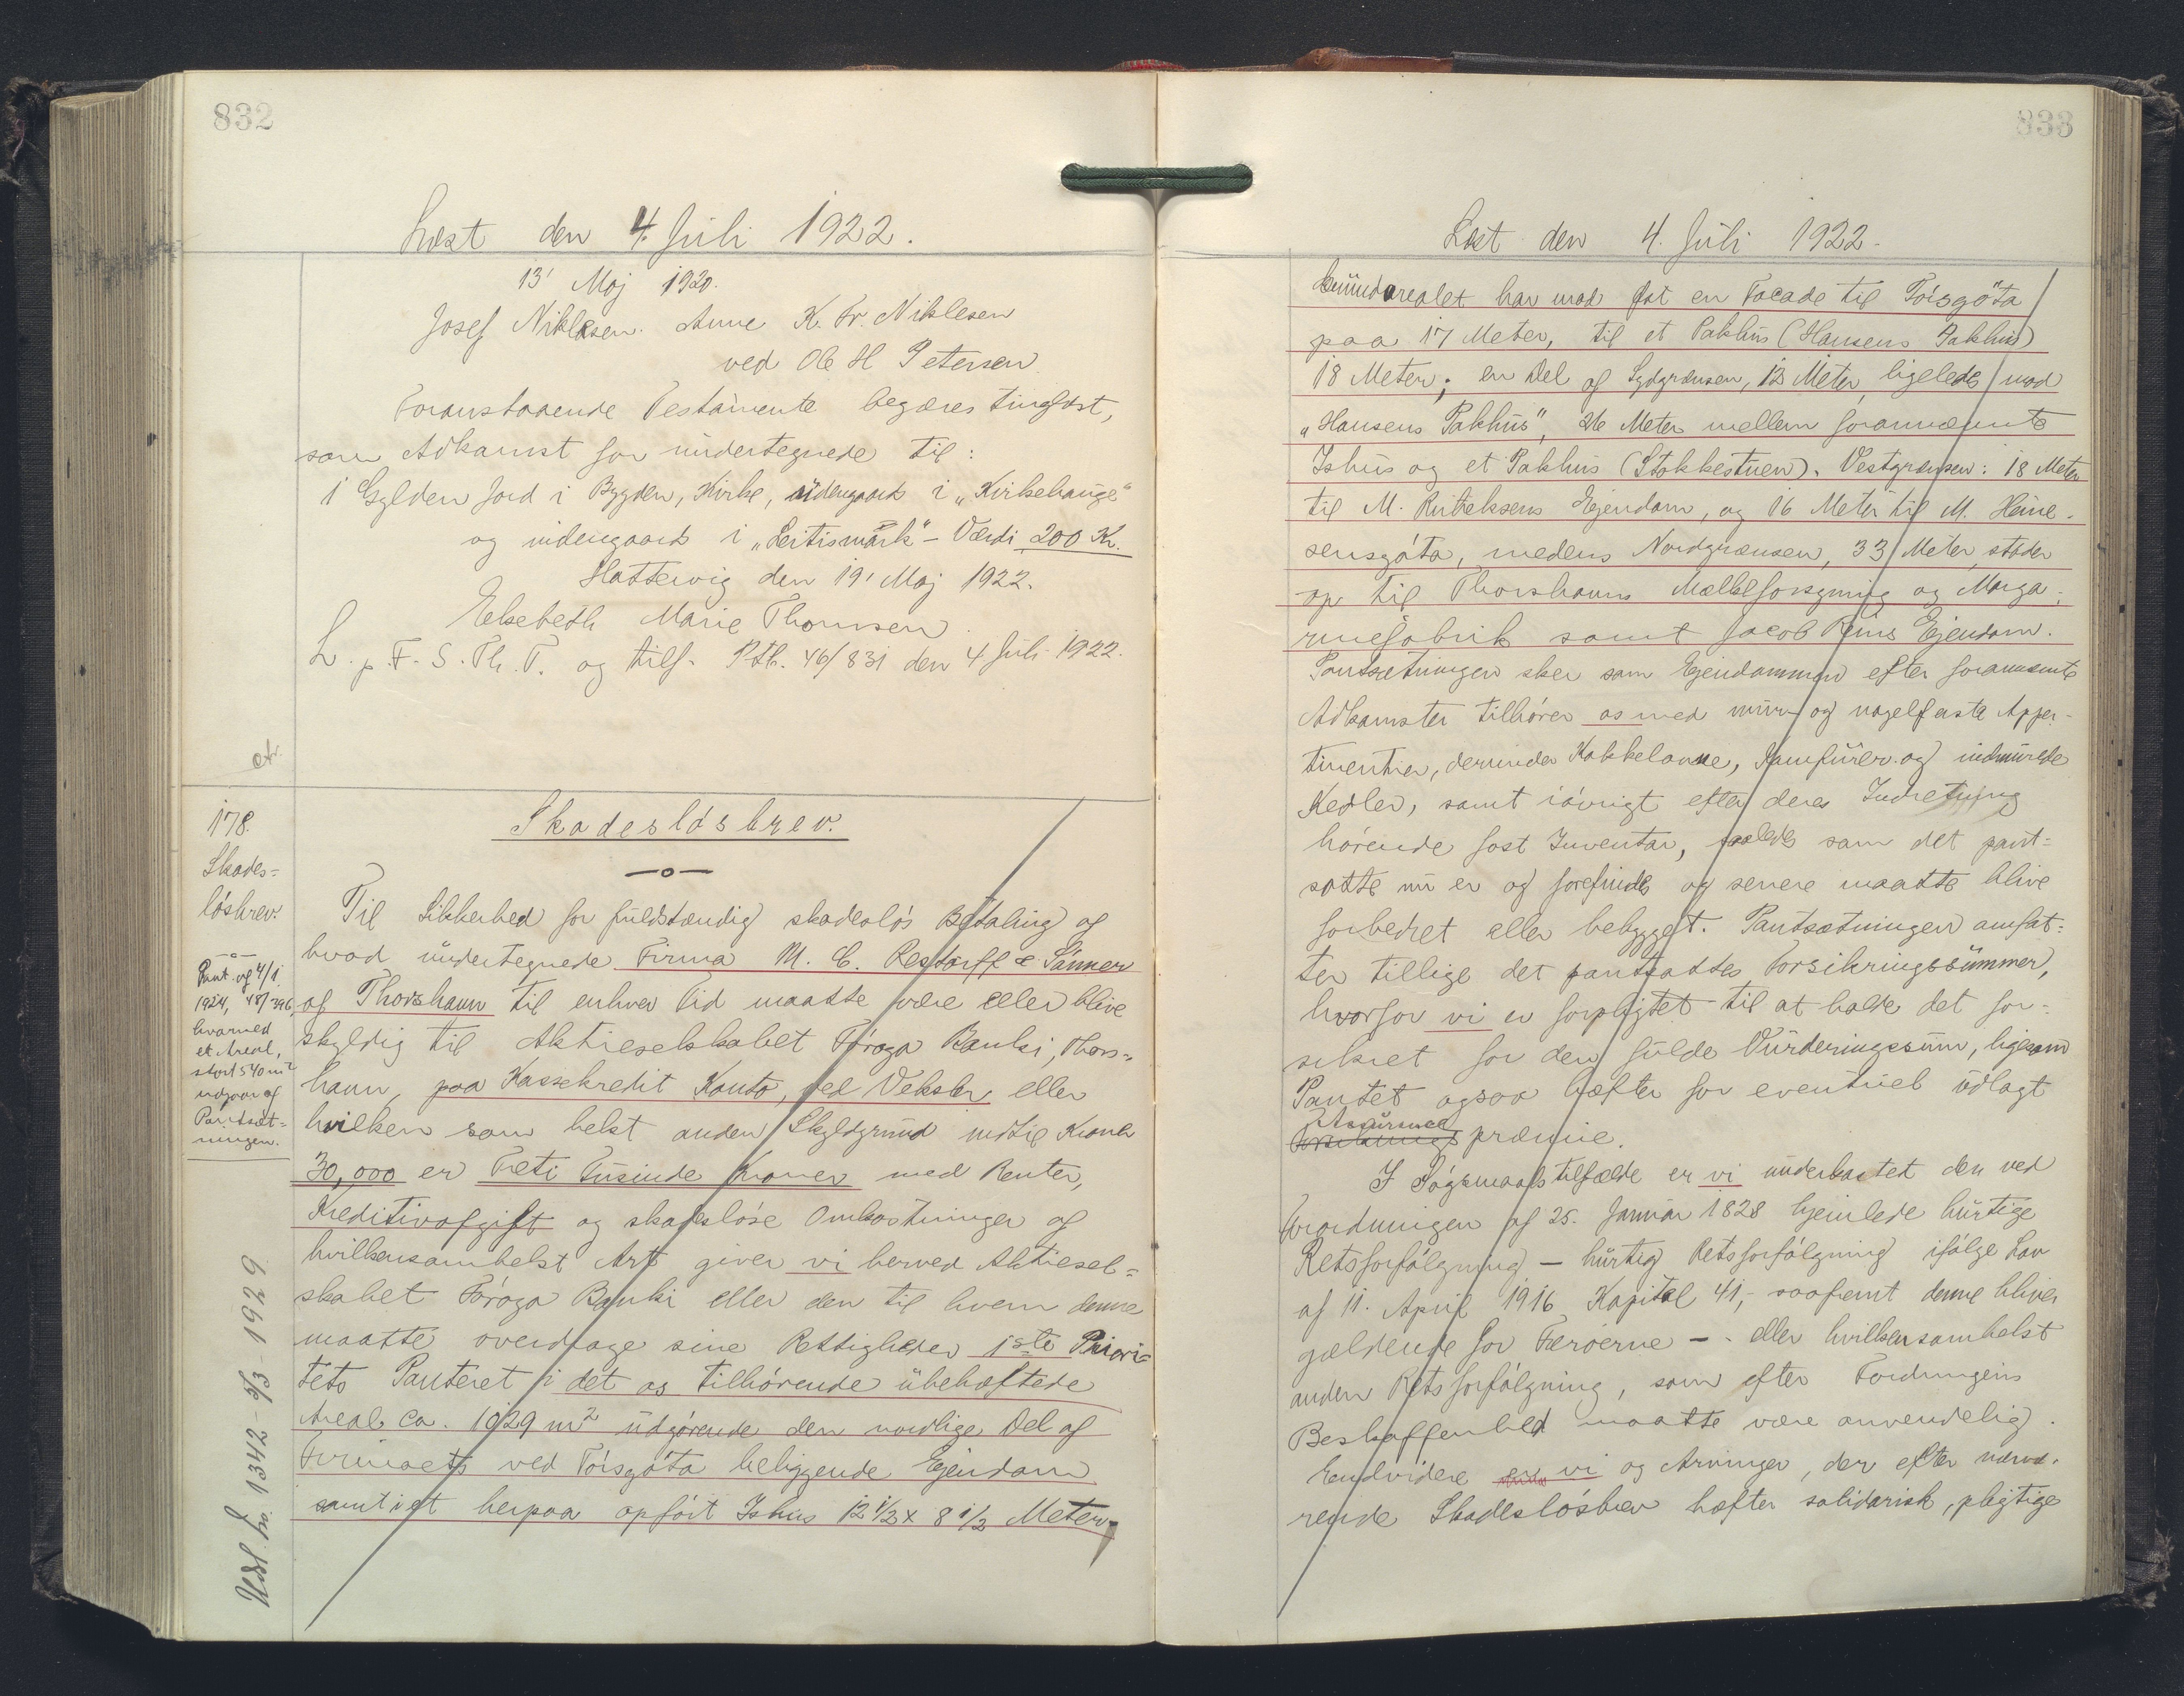 832
Læst den 4. Juli 1922.
13' Maj 1920.
Josef Niklesen. Anne K. Fr. Niklesen
ved Ole H Petersen.
Foranstaaende Testamente begæres tinglæst,
som Adkomst for undertegnede til:
1 Gylden Jord i Bygden, Kirke, udengaards i „Kirkehauge"
og indengaards i „Leitismørk" - Værdi 200 Kr.
Hattervig den 19' Maj 1922.
Elsebeth Marie Thomsen.
L. p. F. S. Th. T. og tilf. Ptb. 46/831 den 4 Juli 1922.
178.
Skades=
løsbrev.
Pant. af 4/1
1924, 48/396,
hvorved
et Areal,
stort 540 m²
udgaar af
Pantsæt=
ningen.
Udsl. L no. 1342 - 5/3 - 1929.
Skadesløsbrev.
Til Sikkerhed for fuldstændig skadesløs Betaling af
hvad undertegnede Firma M. C. Restorff & Sønner
af Thorshavn til enhver Tid maatte være eller blive
skyldig til Aktieselskabet Føroya Banki, Thors=
havn, paa Kassekredit Konto, ved Veksler, eller
hvilken som helst anden Skyldgrund indtil Kroner
30,000 er Treti Tusinde Kroner med Renter,
Kreditivafgift og skadesløse Omkostninger af
hvilkensomhelst Art giver vi herved Aktiesel=
skabet Føroya Banki eller den til hvem denne
maatte overdrage sine Rettigheder 1ste Priori=
tets Panteret i det os tilhørende ubehæftede
Areal ca. 1029 m² udgørende den nordlige Del af
Firmaets ved Tórsgøta beliggende Ejendom
samt igt herpaa opført Ishus 12 1/2 x 8 1/2 Meter.
833
Læst den 4. Juli 1922.
Grundarealet har mod Øst en Facade til Tórsgøta
paa 17 Meter, til et Pakhus (Hansens Pakhus)
18 Meter; en Del af Sydgrænsen, 13 Meter, ligeledes mod
„Hansens Pakhus", 26 Meter mellem forannævnte
Ishus og et Pakhus (Stokkestuen). Vestgrænsen: 18 Meter
til M. Ejendom, og 16 Meter til M. Heine-
sensgøta, medens Nordgrænsen, 33 Meter, støder
op til Thorshavns Mælkeforsyning og Marga-
rinefabrik samt Jacob Ejendom.
Pantsætningen sker som Ejendommen efter forannævnte
Adkomster tilhører os med mur- og nagelfaste Apper-
tinentier, derunder Kakkelovne, Komfurer og indmurede
Kedler, samt iøvrigt efter deres Indretning
hørende fast Inventar, saaledes som det pant=
satte nu er og forefindes og senere maatte blive
forbedret eller bebygget. Pantsætningen omfat=
ter tillige det pantsattes Forsikringssummer,
hvorfor vi er forpligtet til at holde det for-
sikret for den fulde Vurderingssum, ligesom
Pantet ogsaa hæfter for eventuel udlagt
Assurance
Forsikrings præmie.
I Søgsmaalstilfælde er vi underkastet den ved
Forordningen af 25. Januar 1828 hjemlede hurtige
Retsforfølgning — hurtig Retsforfølgning ifølge Lov
af 11. April 1916 Kapitel 41, - saafremt denne bliver
gældende for Færøerne -- eller hvilkensomhelst
anden Retsforfølgning, som efter Fordringens
Beskaffenhed maatte være anvendelig.
Endvidere er vi og Arvinger, der efter nærvæ-
rende Skadesløsbrev hæfter solidarisk, pligtige